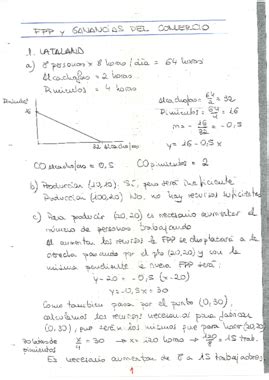 FPP y GANANCIAS DEL COMERCIO
1. LATALAND
a) 8 personas x 8 horas / día = 64 horas
Alcachofas = 2 horas
Pimientos = 4 horas
Alcachofas = 64/2 = 32
Pimientos = 64/4 = 16
m = - 16/32 = -0,5
y = 16 - 0,5x
Pimientos
16
32 Alcachofas
CO alcachofas = 0,5 CO pimientos = 2
b) Producción (10,10). Sí, pero sería ineficiente
Producción (100,100) No, no hay recursos suficientes
c) Para producir (20,20) es necesario aumentar el
número de personas trabajando
Al aumentar los recursos la FPP se desplazará a la
derecha pasando por el pto (20,20) y con la
misma pendiente. La nueva FPP será:
y - 20 = -0,5 (x-20)
y = -0,5x + 30
Como también pasa por el punto (0,30),
calculamos los recursos necesarios para fabricar
(0,30), que serán los mismos que para hacer (20,20)
30 latas de pimientos x/4 = 30 → x = 120 horas → 120/8 = 15 trab.
Es necesario aumentar de 8 a 15 trabajadores
1